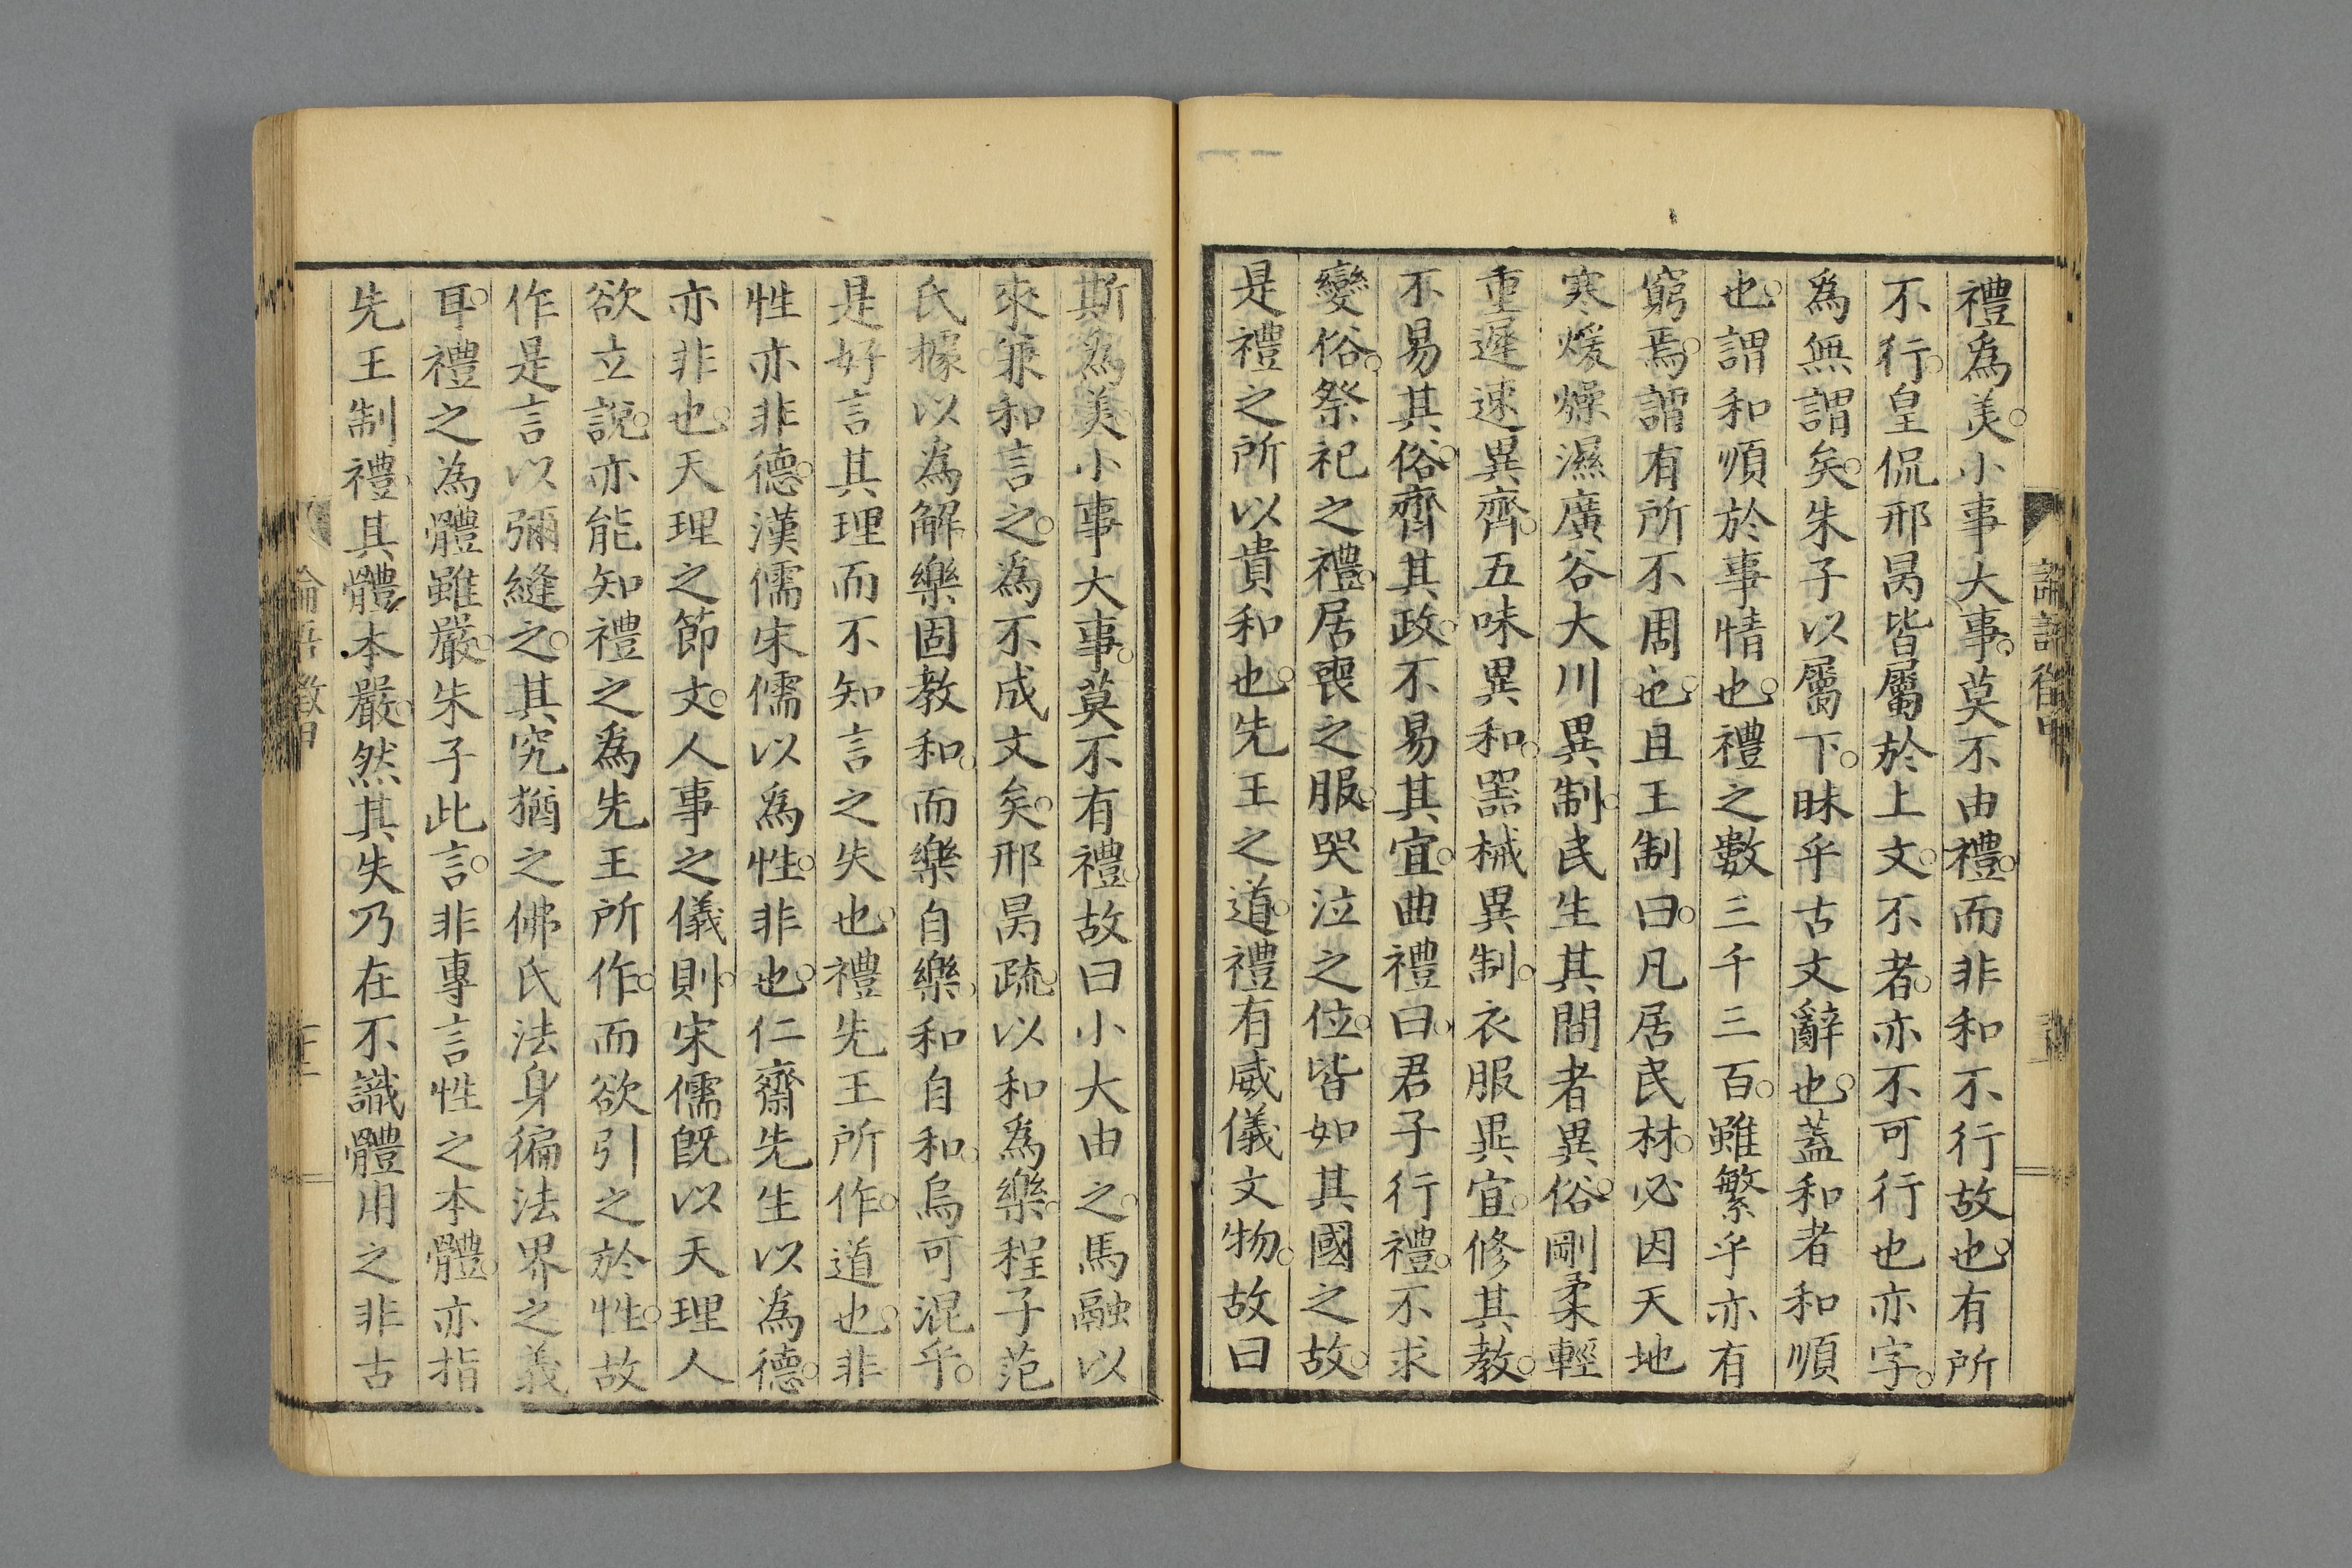 禮爲美。小事大事。莫不由禮。而非和不行故也。有所
不行。皇侃邢昺皆屬於上文。不者。亦不可行也亦字。
爲無謂矣。朱子以屬下。昧乎古文辭也。蓋和者和順
也。謂和順於事情也。禮之數三千三百。雖繁乎亦有
窮焉。謂有所不周也。且王制曰。凡居民材。必因天地
寒煖燥濕廣谷大川異制。民生其間者異俗。剛柔輕
重遲速異齊。五味異和。器械異制。衣服異宜。修其教。
不易其俗。齊其政。不易其宜。曲禮曰。君子行禮。不求
變俗。祭祀之禮。居喪之服。哭泣之位。皆如其國之故。
是禮之所以貴和也。先王之道。禮有威儀文物。故曰
斯爲美。小事大事。莫不有禮。故曰小大由之。馬融以
來。兼和言之。為不成文矣。邢昺疏。以和為樂。程子范
氏據以為解樂固教和。而樂自樂。和自和。烏可混乎。
是好言其理而不知言之失也。禮先王所作。道也。非
性亦非德。漢儒宋儒以為性。非也。仁齋先生以為德。
亦非也。天理之節文。人事之儀則。宋儒既以天理人
欲立說。亦能知禮之爲先王所作。而欲引之於性。故
作是言以彌縫之。其究猶之佛氏法身徧法界之義
耳。禮之為體雖嚴。朱子此言。非專言性之本體。亦指
先王制禮。其體本嚴。然其失乃在不識體用之非古
論語徵甲